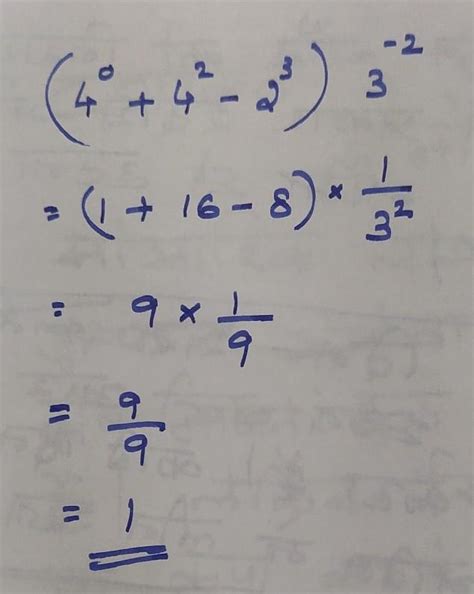 (4⁰ + 4² - 2³) 3⁻²
= (1 + 16 - 8) × 1/3²
= 9 × 1/9
= 9/9
= 1